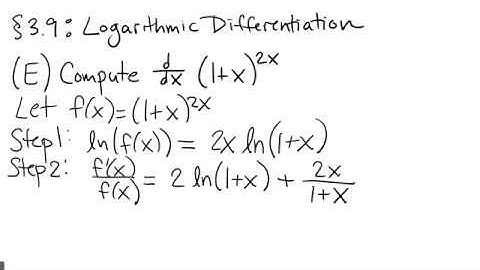 §3.9: Logarthmic Differentiation
(E) Compute d/dx (1+x)^2x
Let f(x)=(1+x)^2x
Step1: ln(f(x)) = 2x ln(1+x)
Step2: f'(x)/f(x) = 2 ln(1+x) + 2x/1+x